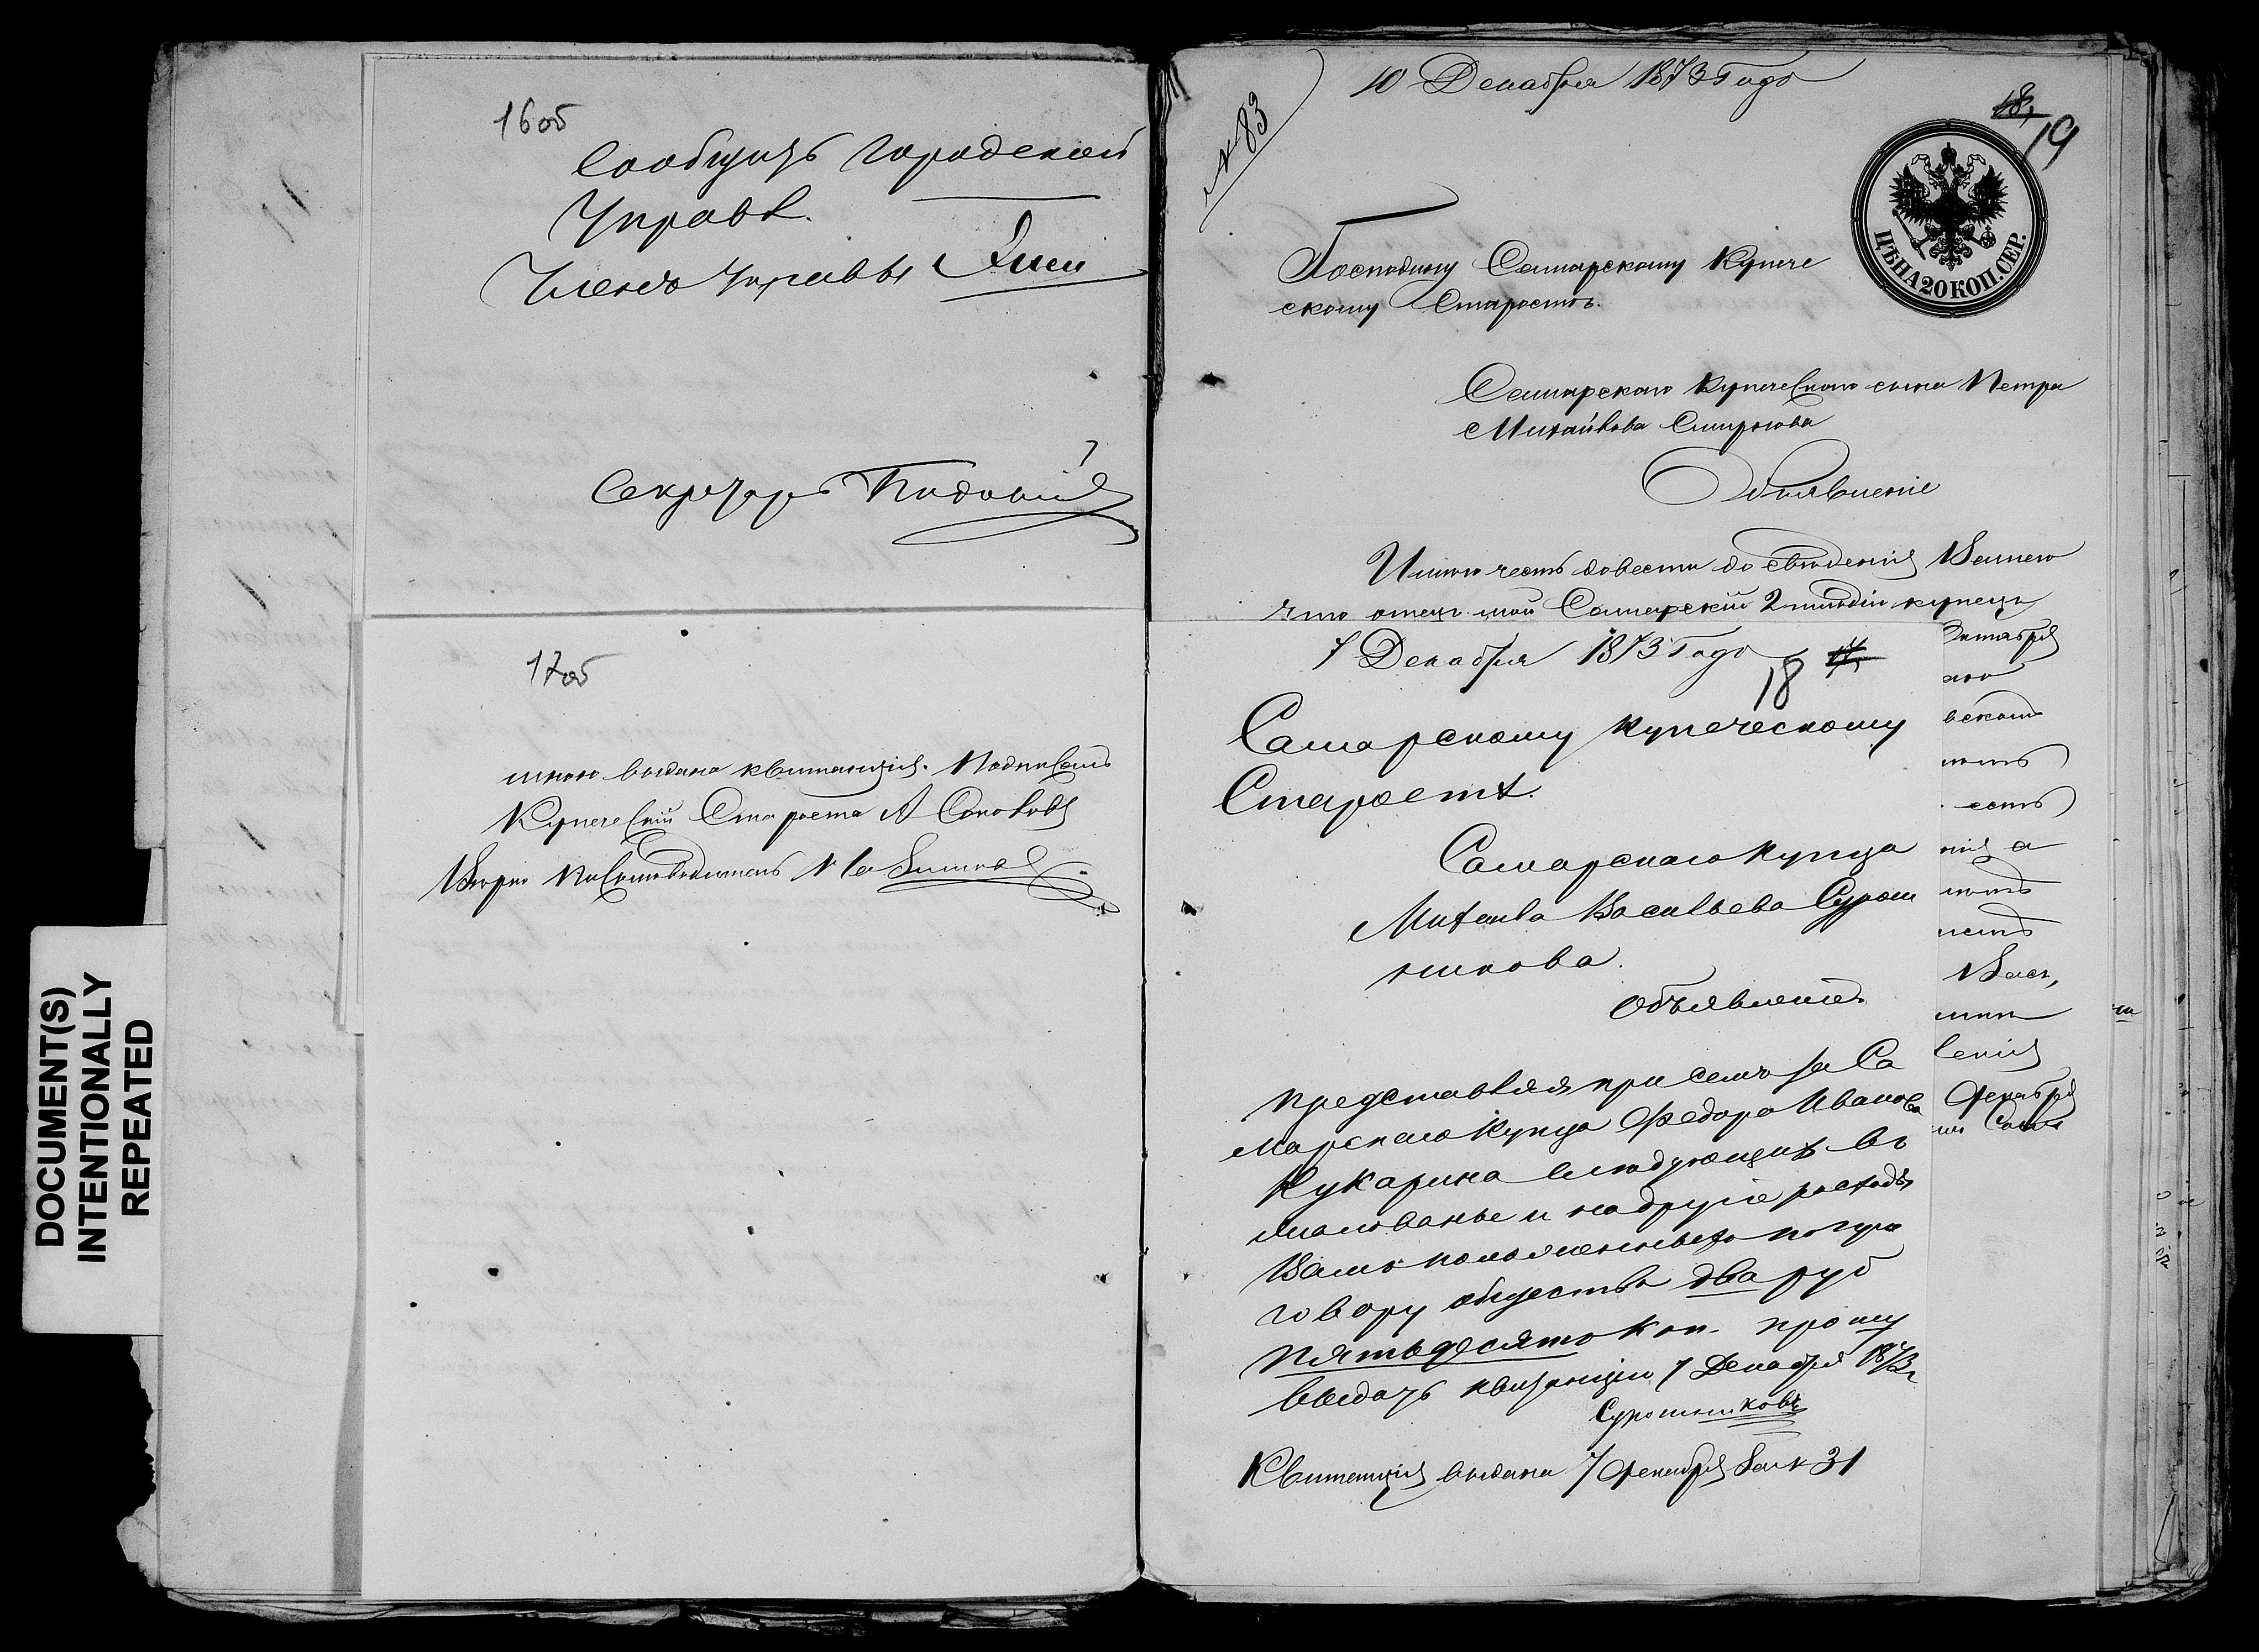 DOCUMENT(S)
INTENTIONALLY
REPEATED
16об
Сообщить Городской
Управѣ.
Членъ Управы
Секретарь
17об
мною выдана квитанція. Подписалъ
Купеческій Староста А Соколовъ
Вѣрно
10 Декабря 1873 Года
№ 83
18,
19
ЦѢНА 20 КОП. СЕР.
Господину Самарскому Купече
скому Старостѣ.
Самарскаго Купеческаго сына Петра
Михайлова Смирнова
Объявленіе
Имѣю честь довести до свѣденія Вашего
что отецъ мой Самарскій 2 гильдіи купецъ
7 Декабря 1873 Года
18
17,
Самарскому Купеческому
Старостѣ.
Самарскаго Купца
Михаила Васильева Сурош
никова.
Объявленіе
представляя при семъ за Са
марскаго Купца Федора Иванова
Кукарина слюдующихъ въ
жалованье и на другіе расходы
Вамъ положенныхъ по при
говору общества два руб
пятьдесятъ коп. прошу
выдать квитанцію 7 Декабря 1873 г
Сурошниковъ
Квитанція выдана 7 Декабря за № 31
Октября
аго
вскомъ
есть
нія а
Васъ,
ленія
Декабря